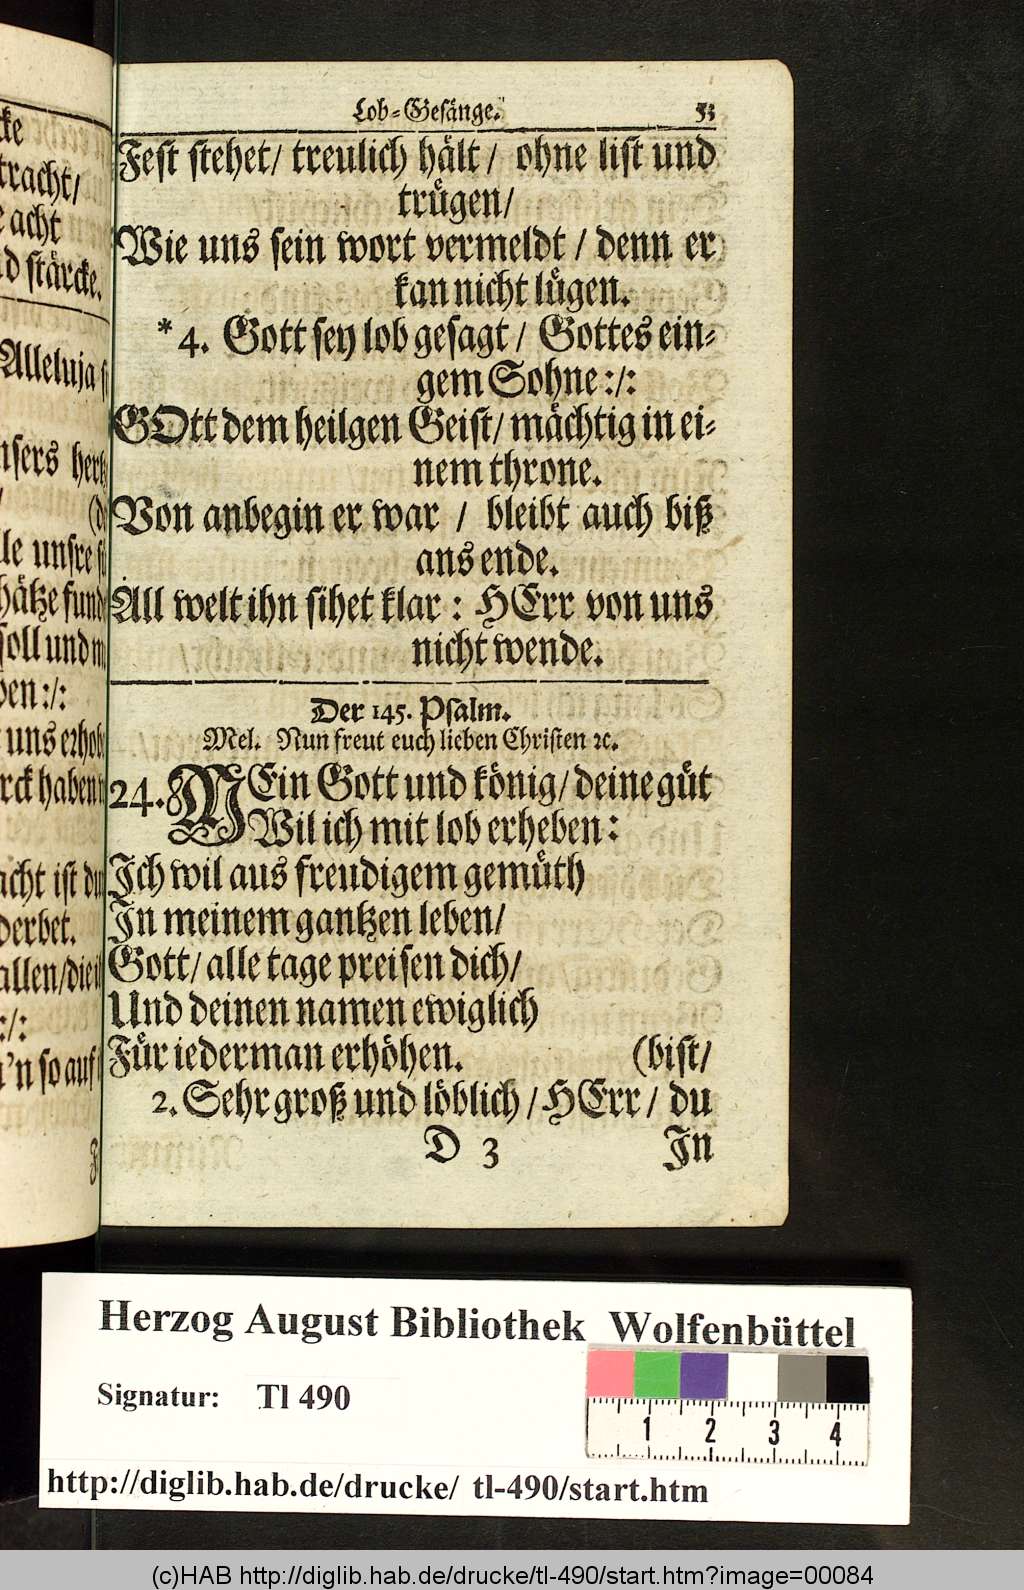 Lob-Gesänge. 53
Fest stehet/ treulich hält/ ohne list und
trügen/
Wie uns sein wort vermeldt / denn er
kan nicht lügen.
* 4. Gott sey lob gesagt / Gottes ein-
gem Sohne :/:
GOtt dem heilgen Geist/ mächtig in ei-
nem throne.
Von anbegin er war / bleibt auch biß
ans ende.
All welt ihn sihet klar : HErr von uns
nicht wende.
Der 145. Psalm.
Mel. Nun freut euch lieben Christen ꝛc.
24. MEin Gott und könig/ deine güt
Wil ich mit lob erheben:
Ich wil aus freudigem gemüth
In meinem gantzen leben/
Gott/ alle tage preisen dich/
Und deinen namen ewiglich
Für iederman erhöhen. (bist/
2. Sehr groß und löblich / HErr / du
D 3 In
tracht/
acht
stärcke.
Alleluja
unsers
unsre
soll und
:/:
uns
haben
ist
derbet.
allen/die
:/:
so auf
Herzog August Bibliothek Wolfenbüttel
Signatur: Tl 490
1 2 3 4
http://diglib.hab.de/drucke/ tl-490/start.htm
(c)HAB http://diglib.hab.de/drucke/tl-490/start.htm?image=00084